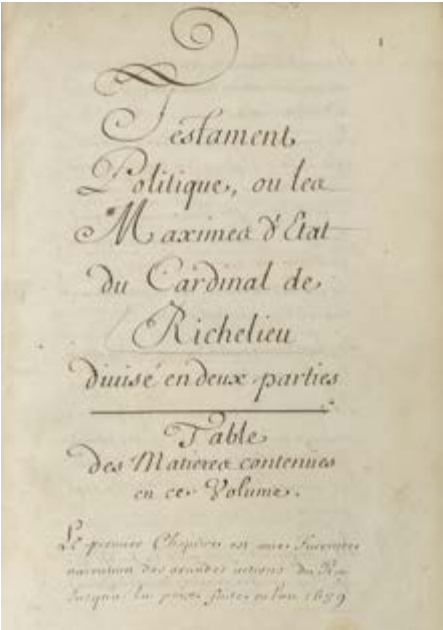 1
Testament
Politique, ou les
Maximes d'Etat
du Cardinal de
Richelieu
divisé en deux parties
Table
des Matieres contenues
en ce Volume.
Le premier Chapitre est une
narration des grandes actions du
Jusqu'a la paix faite en l'an